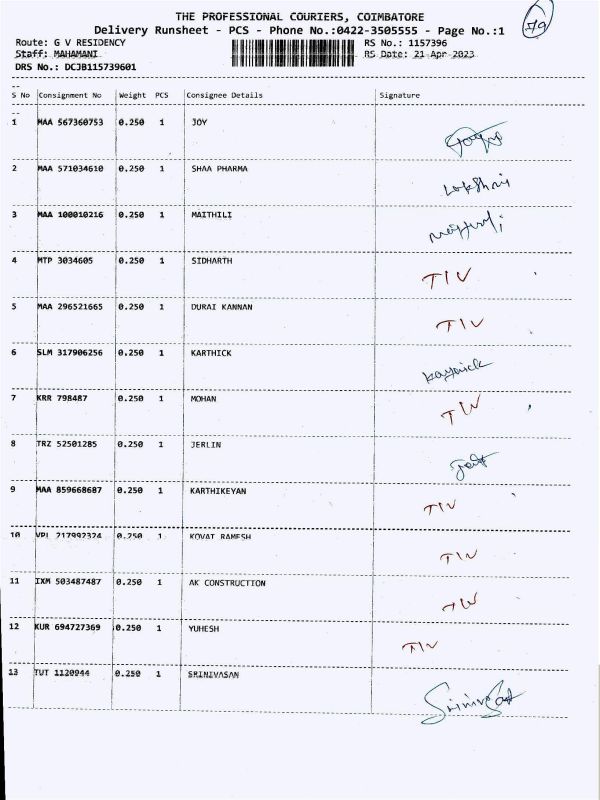 THE PROFESSIONAL COURIERS, COIMBATORE
79
Delivery Runsheet - PCS - Phone No.:0422-3505555 - Page No.:1
Route: G V RESIDENCY RS No.: 1157396
Staff: MAHAMANI RS Date: 21 Apr 2023
DRS No.: DCJB115739601
--
S No Consignment No Weight PCS Consignee Details Signature
--
1 MAA 567360753 0.250 1 JOY
2 MAA 571034610 0.250 1 SHAA PHARMA Lakshmi
3 MAA 100010216 0.250 1 MAITHILI
4 MTP 3034605 0.250 1 SIDHARTH TIV
5 MAA 296521665 0.250 1 DURAI KANNAN TIV
6 SLM 317906256 0.250 1 KARTHICK
7 KRR 798487 0.250 1 MOHAN TIV
8 TRZ 52501285 0.250 1 JERLIN
9 MAA 859668687 0.250 1 KARTHIKEYAN TIV
10 VPI 217992324 0.250 1 KOVAI RAMESH TIV
11 IXM 503487487 0.250 1 AK CONSTRUCTION TIV
12 KUR 694727369 0.250 1 YUHESH TIV
13 TUT 1120944 0.250 1 SRINIVASAN